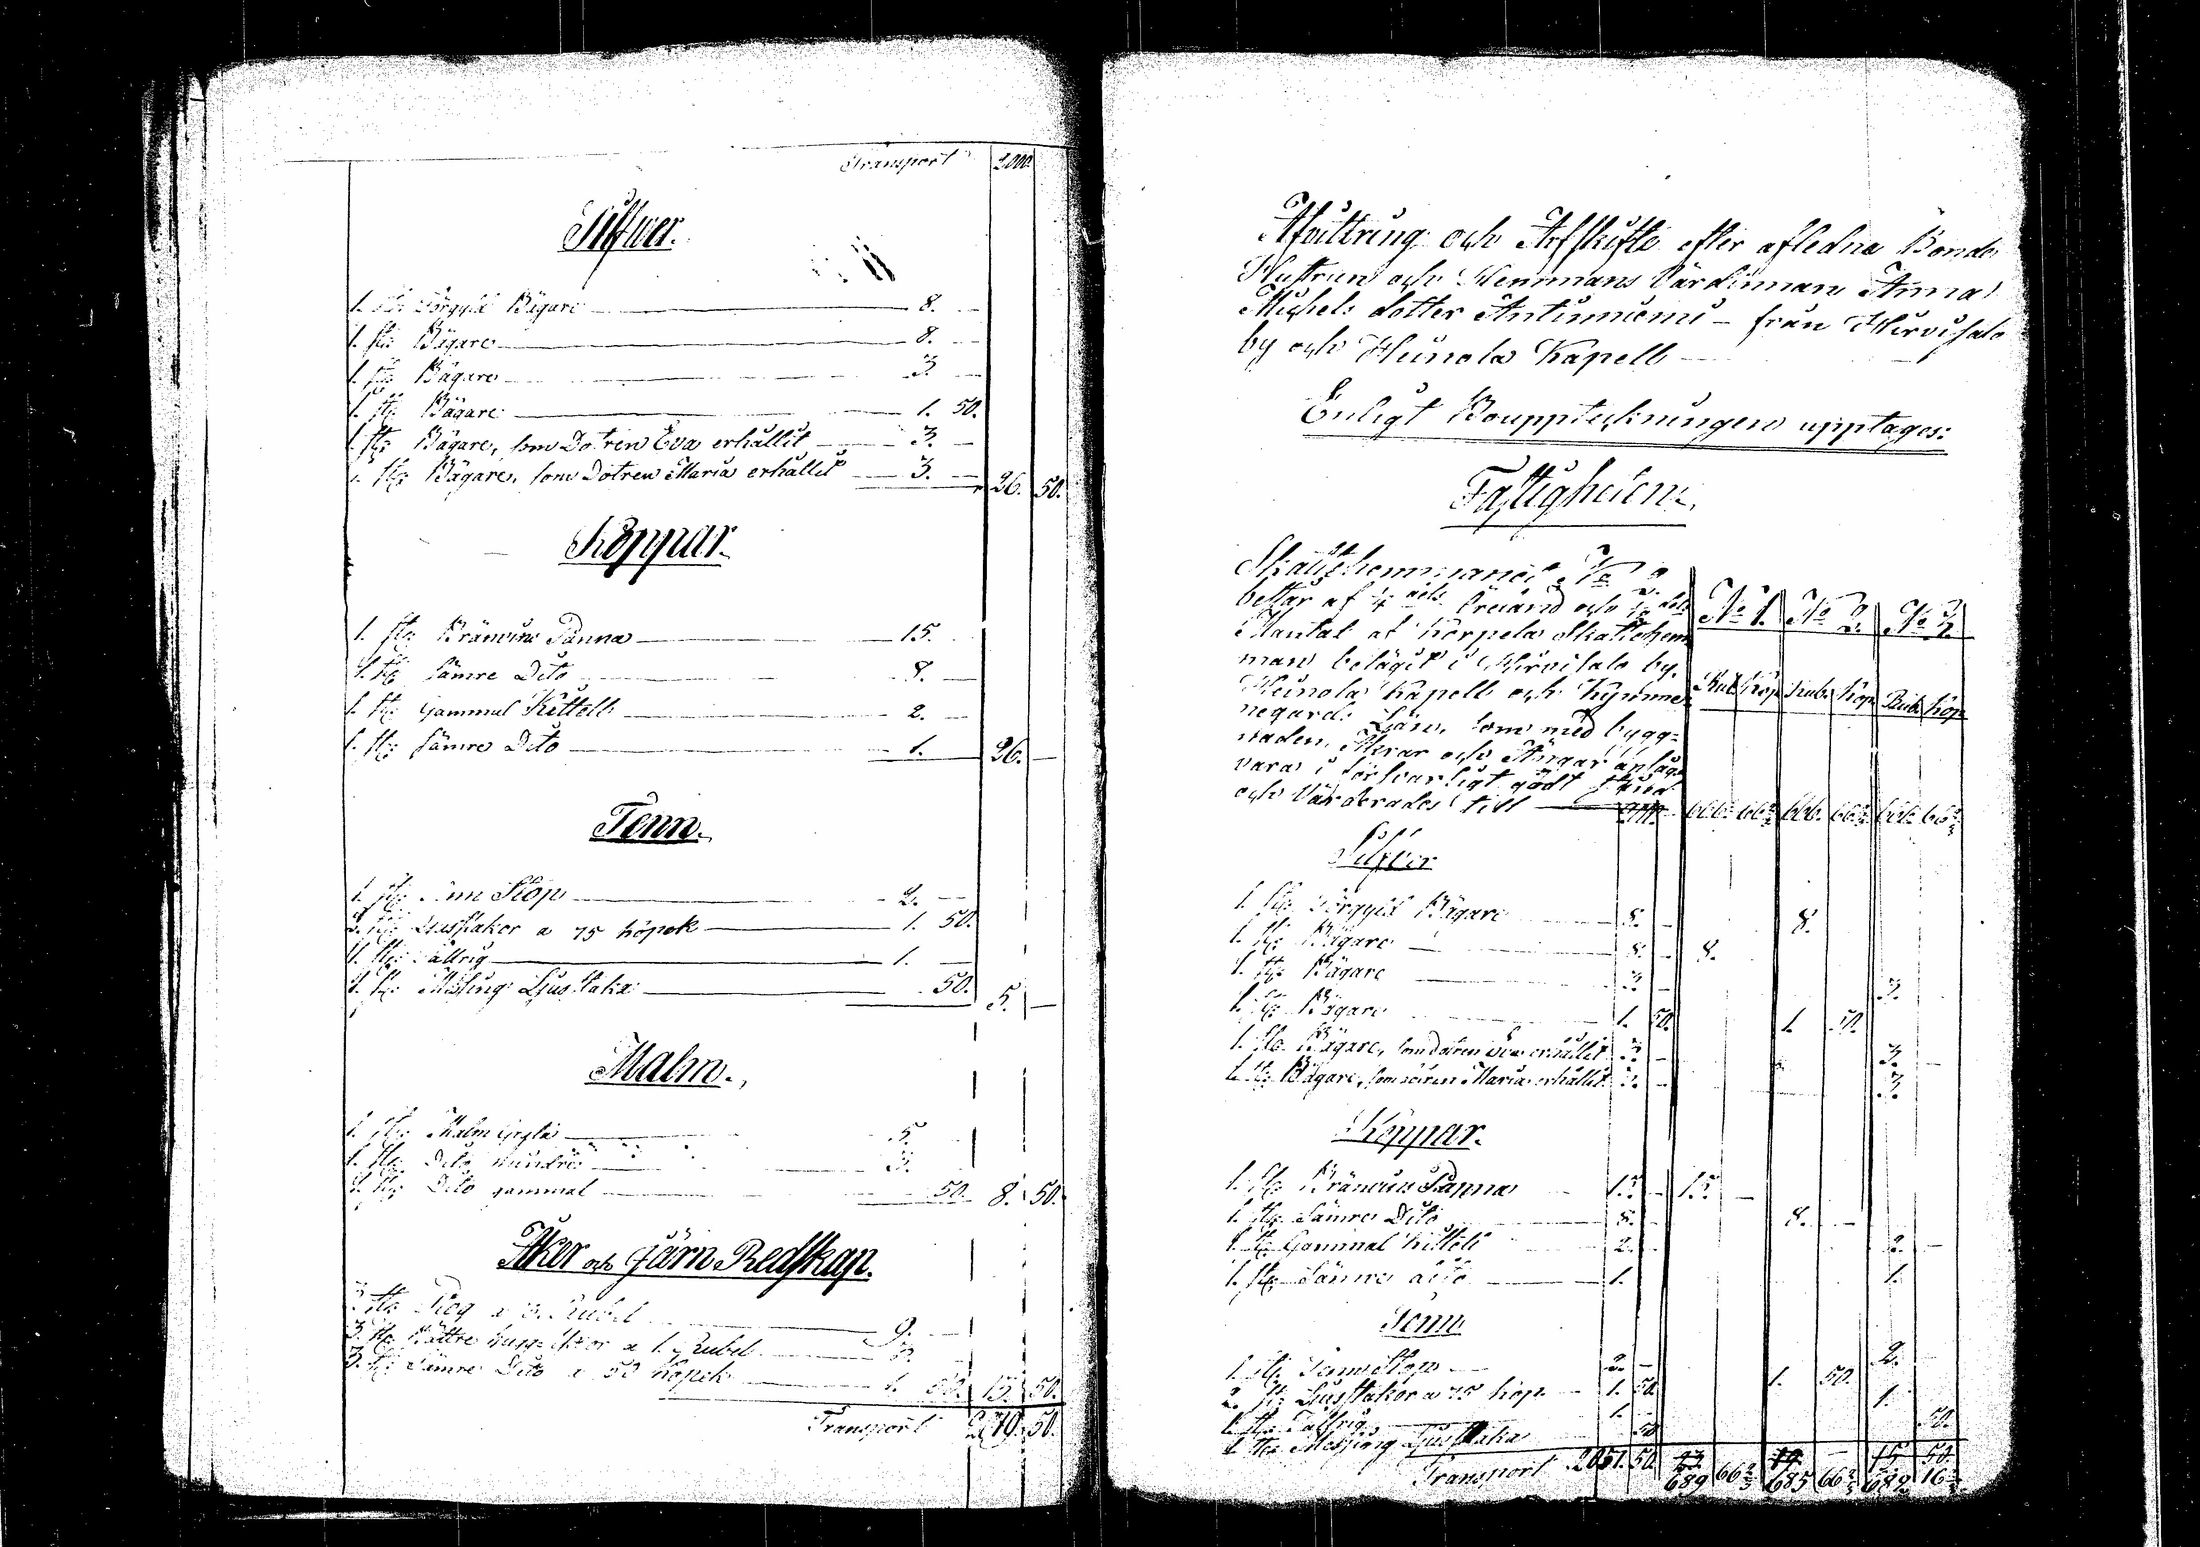 Transport 2000.
Silfwer.
1. st: Förgyld Bägare 8. —
1. st: Bägare 8. —
1. st: Bägare 3. —
1. st: Bägare 1. 50.
1. st: Bägare, som Dotren Eva erhållit 3. —
1. st: Bägare, som Dotren Maria erhållit 3. — 26. 50.
Koppar.
1. st: Bränvins Panna 15.
1. st: sämre Dito 8. —
1. st: Gammal Kettell 2. —
1. st: sämre Dito 1. 26. —
Tenn.
1. st: Tenn Stop 2. —
2. st: Ljusstakor a 75 kopek 1. 50.
1. st: Tallrig 1. —
1. st: Mesing Ljusstaka 50. 5. —
Malm.
1. st: Malm Gryta 5.
1. st: Dito mindre 3.
1. st: Dito gammal 50. 8. 50.
Åker och Järn Redskap.
3. st: Plog a 3. Rubel 9. —
3. st: Bättre a 1. Rubel 3.
3. st: Sämre Dito a 50 Kopek 1. 50. 13. 50.
Transport 2079. 50.
Afvittring och Arfskifte efter afledna Bonde
Hustrun och Hemmans Värdinnan Anna
Michels dotter Anttinniemi – från Hirvisalo
by och Heinola Kapell —
Enligt Bouppteckningen upptages:
Fastigheten.
Skattehemmanet No 2.
består af Öretand och
Mantal af Korpela Skattehem
man beläget i Hirvisalo by.
Heinola Kapell och Kymme
negårds Län, som med bygg=
naden, Åkrar och Ängar
vara i försvarligt godt stånd
och Värderades till 666. 66 2/3 666. 66 2/3 666. 66 2/3
No 1. No 2. No 3.
Rub Kop Rub. Kop Rub. Kop
Silfver
1. st: Förgyld Bägare 8. — 8.
1. st: Bägare 8. — 8.
1. st: Bägare 3 — 3.
1. st: Bägare 1. 50. 1. 50.
1. st: Bägare, som Dotren Eva erhållit 3. — 3.
1. st: Bägare, som Dotren Maria erhållit 3. — 3.
Koppar.
1. st: Bränvins Panna 15. — 15. —
1. st: Sämre Dito 8. — 8. —
1. st: Gammal Kittell 2. — 2. —
1. st: Sämre dito 1. 1.
Tenn
1. st: Tenn Stop 2. — 2.
2. st: Ljusstakor a 75 kop 1. 50. 1. 50.
1. st: Tallrig 1. — 1.
1. st: Messing Ljusstaka 50 50.
Transport 2051. 50. 689 66 2/3 685 66 2/3 15 50.